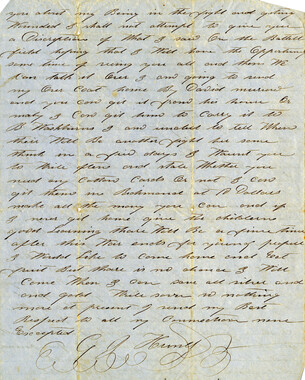 you about Being in the fight and getting
Wounded I shall not attempt to give you
a Discription of What I saw On the Battell
field hoping that I Will have the Oppertunity
some time of seing you all and then We
Can talk it Over I am going to send
my Over Coat home By David
and you can get it from his house Or
I Can get him to Carry it to
B Washburns I am unable to tell When
there Will Be another fight her some
think in a few days I Want you
to Write plain and state Whether you
need Cotton Cards Or not I can
get them in Richmond at 10 Dollars
make all the mony you can and if
I never get home give the children
good Learning thare Will Be a fine time
after this War ends for young people
I Would Like to Come home and get
fruit But there is no chance I Will
Come When I can save all silver and
and gold Well there is nothing
more at present I send my Best
Respect to all my Connection none
Excepted